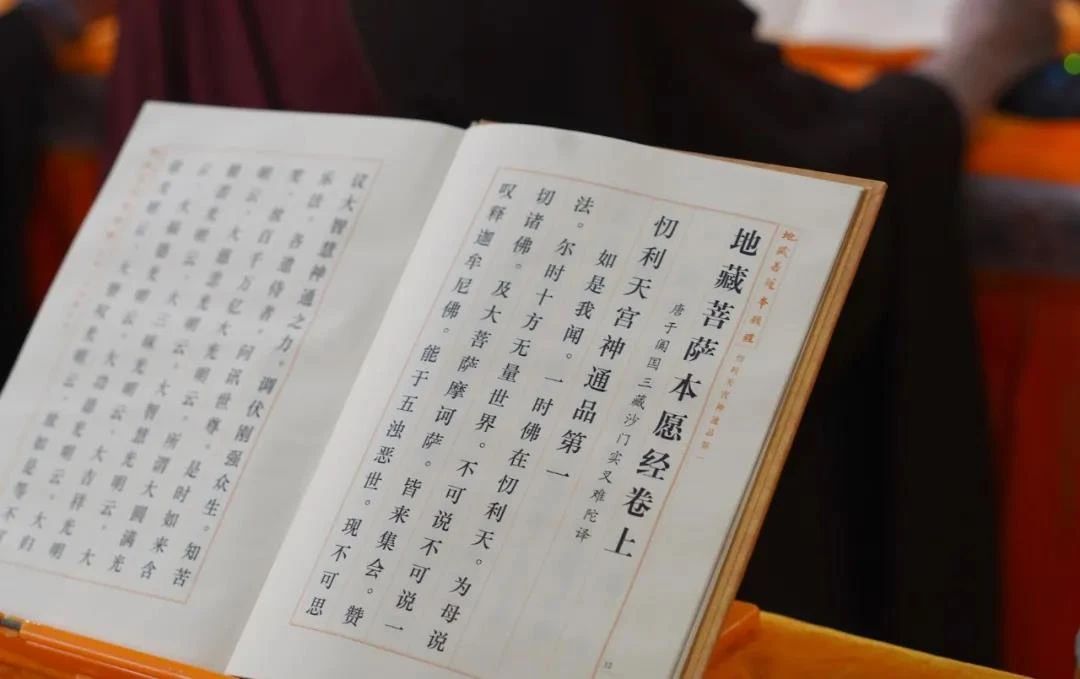 地藏菩萨本愿经 忉利天宫神通品第一
地藏菩萨本愿经卷上
唐于阗国三藏沙门实叉难陀译
忉利天宫神通品第一
如是我闻。一时佛在忉利天。为母说
法。尔时十方无量世界。不可说不可说一
切诸佛。及大菩萨摩诃萨。皆来集会。赞
叹释迦牟尼佛。能于五浊恶世。现不可思
议大智慧神通之力。调伏刚强众生。知苦
乐法。各遣侍者。问讯世尊。是时如来含
笑。放百千万亿大光明云。所谓大圆满光
明云。大慈悲光明云。大智慧光明云。大
般若光明云。大三昧光明云。大吉祥光明
云。大福德光明云。大功德光明云。大归
依光明云。大赞叹光明云。放如是等不可